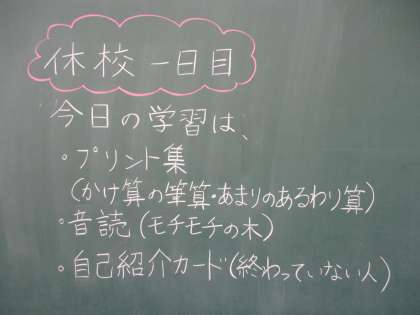 休校一日目
今日の学習は、
・プリント集
(かけ算の筆算・あまりのあるわり算)
・音読(モチモチの木)
・自己紹介カード(終わっていない人)